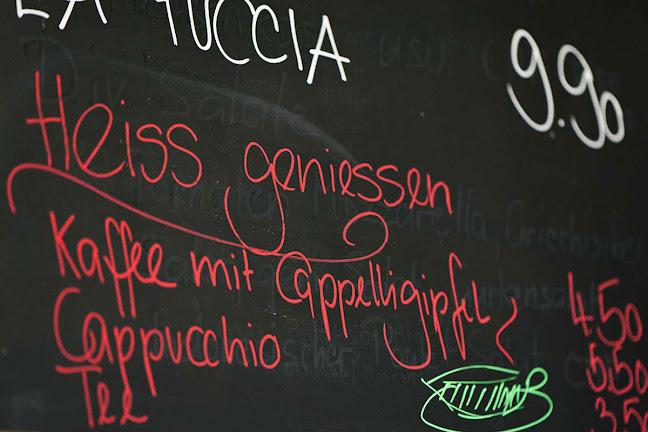 LA TUCCIA 9.90
Heiss geniessen
Kaffee mit Cappelligipfel 4.50
Cappucchio 5.50
Tee 3.50